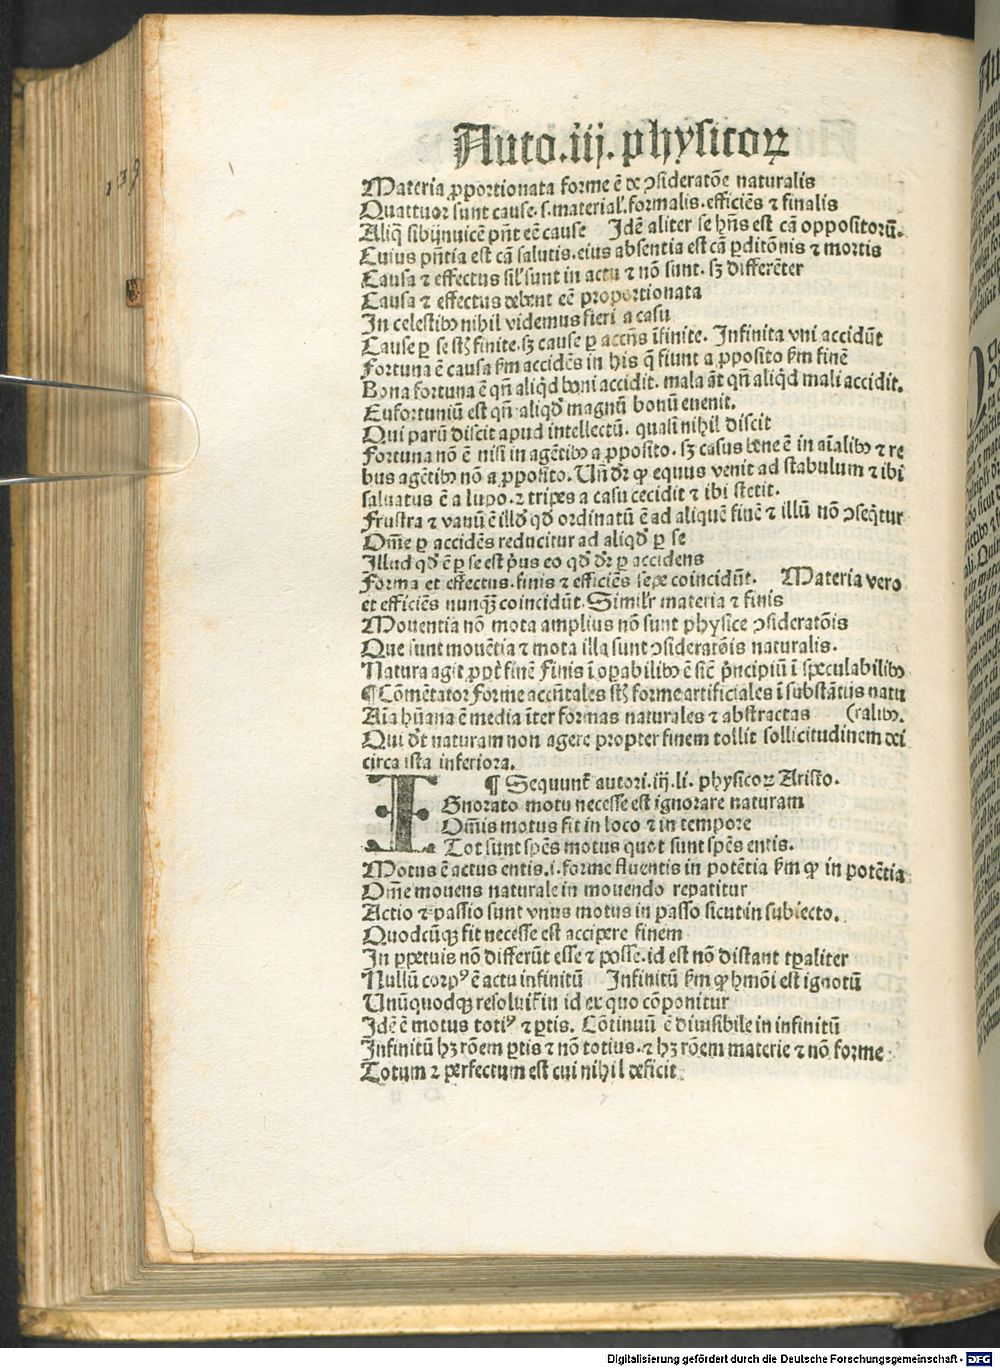 139
Auto.iij.physicoꝝ
Materia ꝓportionata forme ē de ↄsideratōe naturalis
Quattuor sunt cause.s.material'.formalis.efficiēs ⁊ finalis
Aliq̄ sibijnuicē pn̄t eē cause Idē aliter se hn̄s est cā oppositorū.
Cuius pn̄tia est cā salutis.eius absentia est cā ꝑditōnis ⁊ mortis
Causa ⁊ effectus sil' sunt in actu ⁊ nō sunt. sꝫ differēter
Causa ⁊ effectus debent eē proportionata
In celestibꝰ nihil videmus fieri a casu
Cause ꝑ se st̄ finite.sꝫ cause ꝑ accn̄s īfinite. Infinita vni accidūt
Fortuna ē causa ẜm accidēs in his q̄ fiunt a ꝓposito ẜm finē
Bona fortuna ē qn̄ aliqd boni accidit. mala āt qn̄ aliqd mali accidit.
Eufortuniū est qn̄ aliqd magnū bonū euenit.
Qui parū discit apud intellectū. quasi nihil discit
Fortuna nō ē nisi in agētibꝰ a ꝓposito. sꝫ casus bene ē in aīalibꝰ ⁊ re
bus agētibꝰ nō a ꝓposito. Un̄ dr̄ ꝙ equus venit ad stabulum ⁊ ibi
saluatus ē a lupo.⁊ tripes a casu cecidit ⁊ ibi stetit.
Frustra ⁊ vanū ē illd' qd' ordinatū ē ad aliquē finē ⁊ illū nō ↄseq̄tur
Om̄e ꝑ accidēs reducitur ad aliqd' ꝑ se
Illud qd' ē ꝑ se est p̄us eo qd' dr̄ ꝑ accidens
Forma et effectus.finis ⁊ efficiēs sepe coincidūt. Materia vero
et efficiēs nunqꝫ coincidūt. Simil'r materia ⁊ finis
Mouentia nō mota amplius nō sunt physice ↄsideratōis
Que sunt mouētia ⁊ mota illa sunt ↄsideratōis naturalis.
Natura agit ꝓpt' finē Finis ī oꝑabilibꝰ ē sic̄ p̄ncipiū ī speculabilibꝰ
¶ Cōmētator Forme accn̄tales st̄ forme artificiales ī substātijs natu
Aīa hūana ē media īter formas naturales ⁊ abstractas (ralibꝰ.
Qui dt̄ naturam non agere propter finem tollit sollicitudinem dei
circa ista inferiora.
¶ Sequunt' autori.iij.li. physicoꝝ Aristo.
IGnorato motu necesse est ignorare naturam
Om̄is motus fit in loco ⁊ in tempore
Tot sunt spēs motus quot sunt spēs entis.
Motus ē actus entis.i.forme fluentis in potētia ẜm ꝙ in potētia
Om̄e mouens naturale in mouendo repatitur
Actio ⁊ passio sunt vnus motus in passo sicut in subiecto.
Quodcūqꝫ fit necesse est accipere finem
In ꝑpetuis nō differūt esse ⁊ posse.id est nō distant tꝑaliter
Nullū corpꝰ ē actu infinitū Infinitū ẜm ꝙ hmōi est ignotū
Unūquodqꝫ resoluit' in id ex quo cōponitur
Idē ē motus totiꝰ ⁊ ꝑtis. Cōtinuū ē diuisibile in infinitū
Infinitū hꝫ rōem ꝑtis ⁊ nō totius.⁊ hꝫ rōem materie ⁊ nō forme
Totum ⁊ perfectum est cui nihil deficit
Digitalisierung gefördert durch die Deutsche Forschungsgemeinschaft - DFG